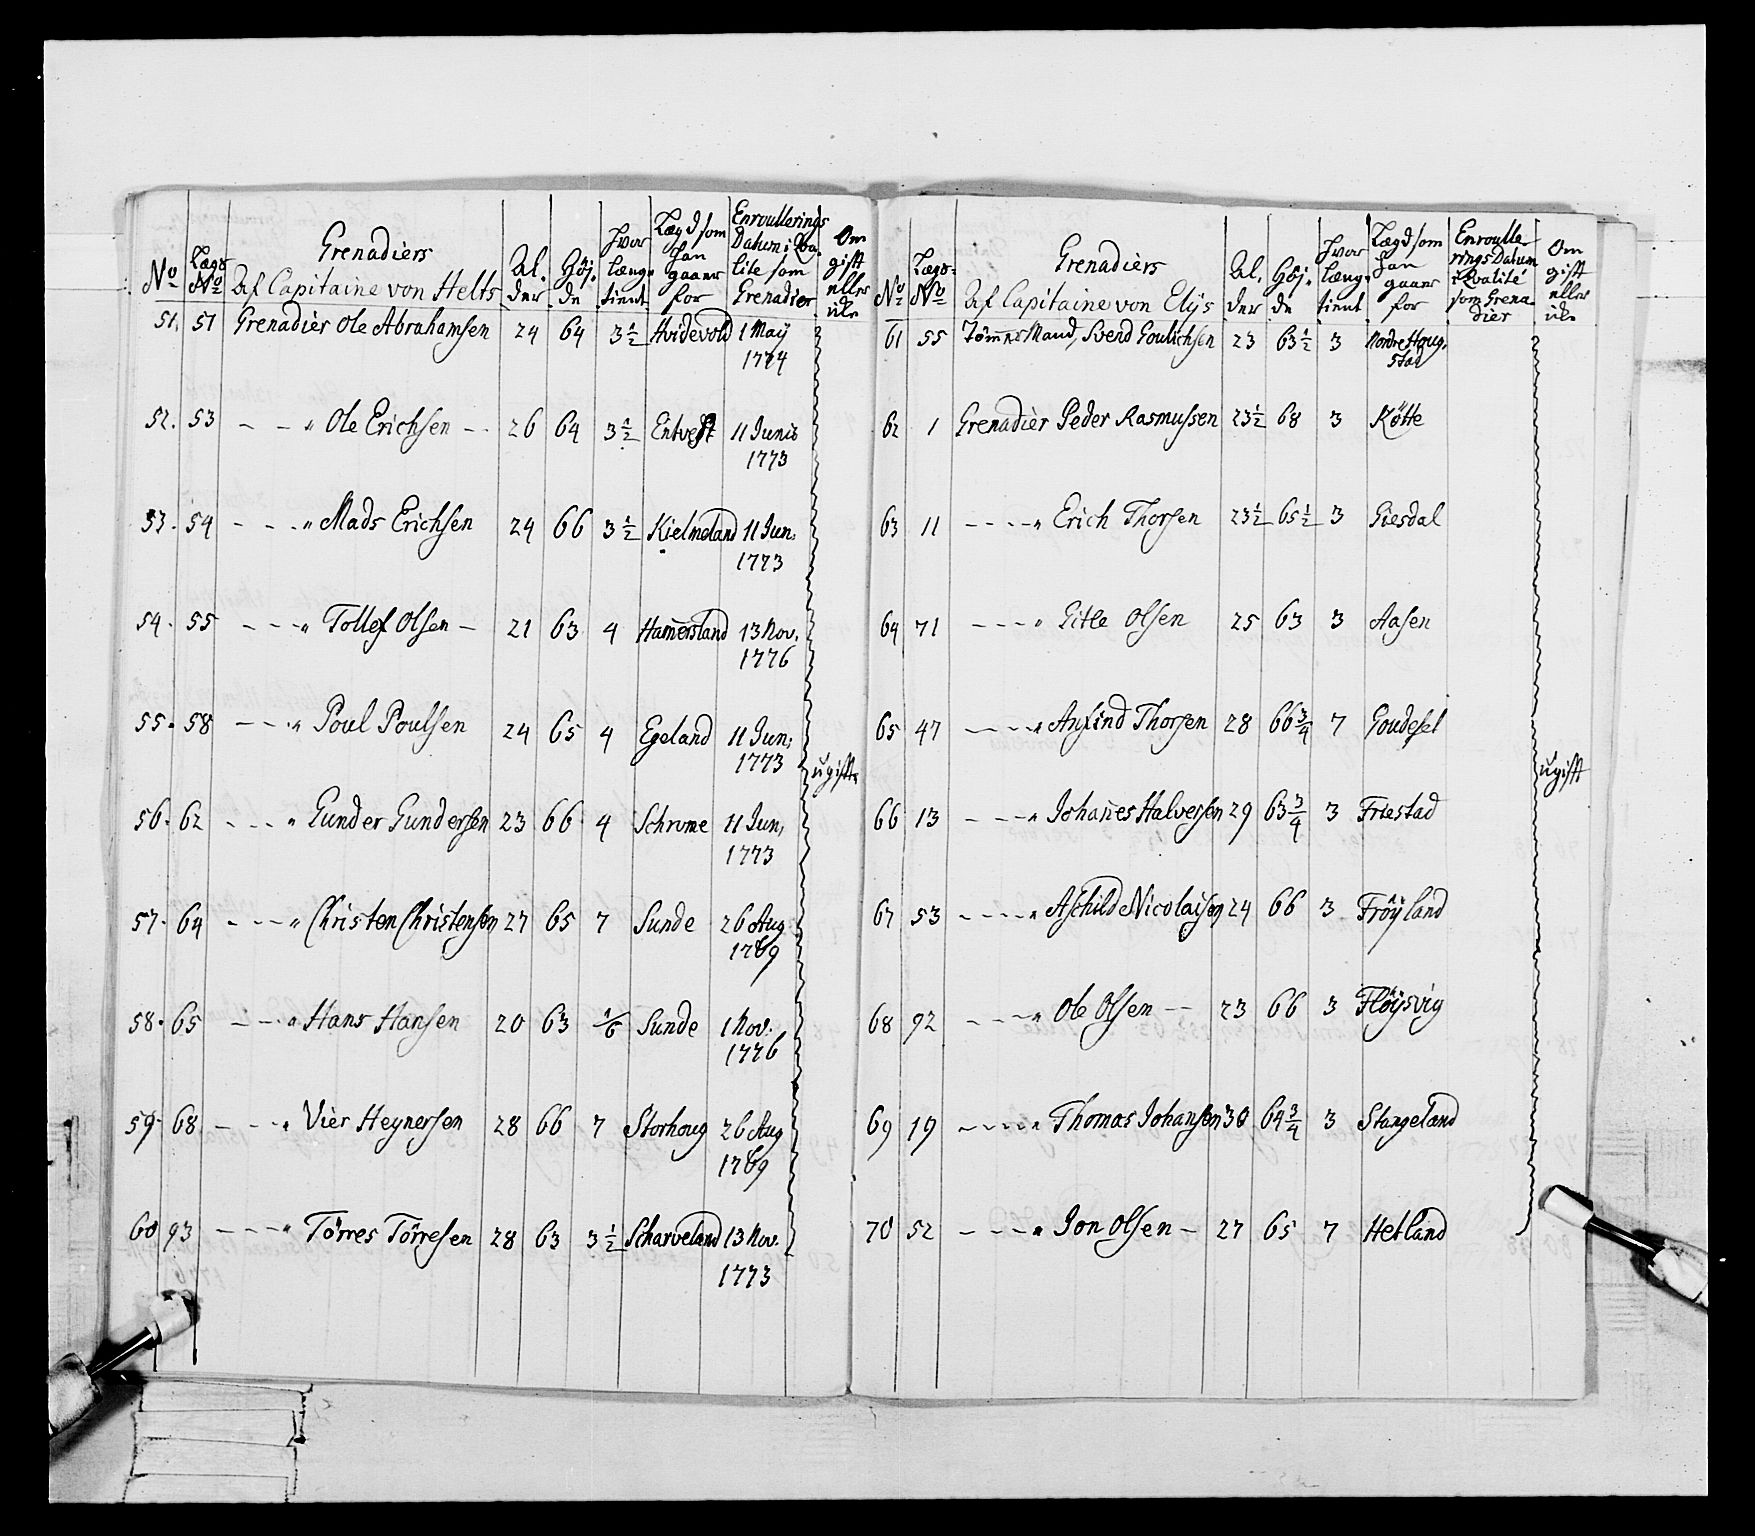 Grenadiers
Af Capitaine von Helts
No
Lægs No
Al. der
Höj. de
Hvor længe tient
Lægd som han gaaer for
Enroullerings Datum i Qvalite som Grenadier
Om gift eller ikke
51. 51 Grenadier Ole Abrahamsen 24 64 3½ Hvidevold 1 Maÿ
1774
52. 53 - - " Ole Erichsen - - 26 64 3½ Entvest 11 Junii
1773
53. 54 - - - " Mads Erichsen 24 66 3½ Kielmeland 11 Jun:
1773
54. 55 - - - " Tollef Olsen - 21 63 4 Ham̄ersland 13 Nov.
1776
55. 58 - - " Poul Poulsen 24 65 4 Egeland 11 Jun:
1773
ugifft
56. 62 - - - " Gunder Gundersen 23 66 4 Schrume 11 Jun:
1773
57. 64 - - - " Christen Christensen 27 65 7 Sunde 26 Aug
1769
58. 65 - - - " Hans Hansen 20 63 1/6 Sunde 1 Nov.
1776
59. 68 - - - " Vier Heynersen 28 66 7 Storhoug 26 Aug
1769
60 93 - - - " Törres Törresen 28 63 3½ Scharveland 13 Nov.
1773
Grenadiers
Af Capitaine von Elÿs
No
Lægs No
Al. der
Höj. de
Hvor længe tient
Lægd som han gaaer for
Enroullerings Datum i Kvalité som Grenadier
Om gift eller ikke
61 55 Töm̄erMand, Svend Goulichsen 23 63½ 3 Nordre Houg-
stad
62 1 Grenadier Peder Rasmussen 23½ 68 3 Kötte
63 11 - - - - " Erich Thorsen 23½ 65½ 3 Giesdal
64 71 - - - - " Gitle Olsen 25 63 3 Aasen
65 47 - - - - " Anfind Thorsen 28 66¾ 7 Goudesel
ugifft
66 13 - - - - " Johan̄es Halversen 29 63¾ 3 Friestad
67 53 - - - - " Aschild Nicolaisen 24 66 3 Fröÿland
68 92 - - - - " Ole Olsen - - 23 66 3 Flöÿsvig
69 19 - - - - " Thomas Johansen 30 64¾ 3 Stangeland
70 52 - - - - " Jon Olsen - 27 65 7 Hetland